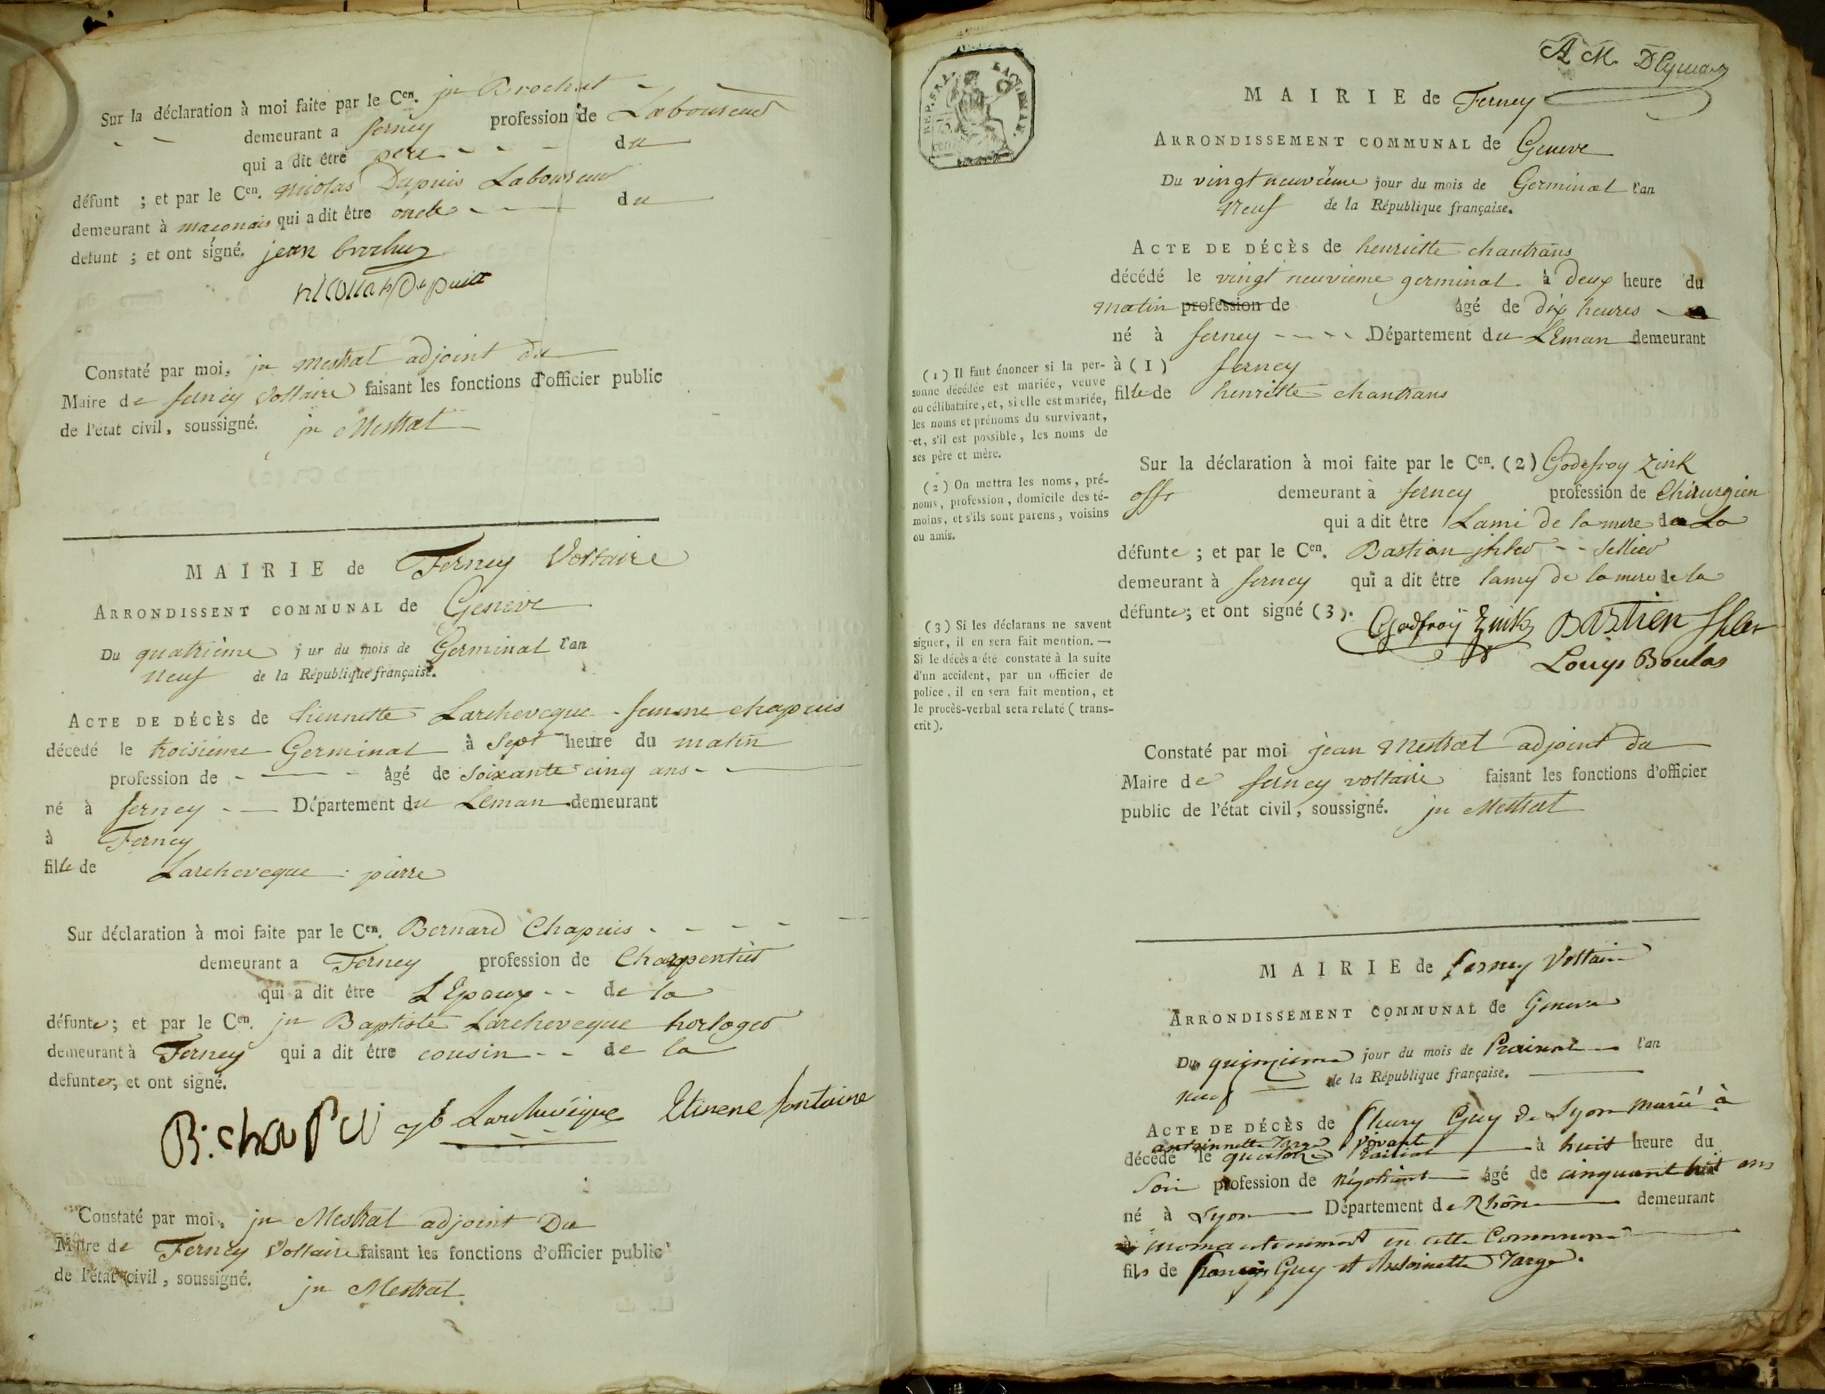 Sur la déclaration à moi faite par le Cen. jn Brochut
demeurant a ferney profession de Laboureur
qui a dit être pere du
défunt ; et par le Cen. Nicolas Dupuis Laboureur
demeurant à maconais qui a dit être oncle du
défunt ; et ont signé. jean
Constaté par moi, jn Mestral adjoint du
Maire de ferney Voltaire faisant les fonctions d'officier public
de l'état civil, soussigné. jn Mestral
MAIRIE de Ferney Voltaire
ARRONDISSENT COMMUNAL de Geneve
Du quatrième jour du mois de Germinal l'an
neuf de la République française.
ACTE DE DÉCÈS de henriette Larcheveque femme chapuis
décédé le troisieme Germinal à Sept heure du matin
profession de âgé de Soixante cinq ans
né à ferney Département du Leman demeurant
à Ferney
fille de Larcheveque pierre
Sur déclaration à moi faite par le Cen. Bernard Chapuis
demeurant a Ferney profession de Charpentier
qui a dit être L'Epoux de la
défunte; et par le Cen. jn Baptiste Larcheveque horloger
demeurant à Ferney qui a dit être cousin de la
defunte; et ont signé.
B. chapui Larcheveque Etienene fontaine
Constaté par moi, jn Mestral adjoint Du
Maire de Ferney Voltaire faisant les fonctions d'officier public
de l'état civil, soussigné. jn Mestral
A M
RÉP. FRA.
MAIRIE de Ferney
ARRONDISSEMENT COMMUNAL de Geneve
Du vingt neuvième jour du mois de Germinal l'an
Neuf de la République française.
ACTE DE DÉCÈS de henriette chantrans
décédé le vingt neuvieme germinal à deux heure du
matin profession de âgé de dix heures
né à ferney Département du Léman demeurant
à (1) ferney
fille de henriette chantrans
(1) Il faut énoncer si la per-
sonne décédée est mariée, veuve
ou célibataire, et, si elle est mariée,
les noms et prénoms du survivant,
et, s'il est possible, les noms de
ses père et mère.
Sur la déclaration à moi faite par le Cen. (2) Godefroy Zink
demeurant à ferney profession de Chirurgien
qui a dit être Lami de la mere de La
défunte ; et par le Cen. Bastian Sellier
demeurant à ferney qui a dit être lamy de la mere de la
défunte; et ont signé (3). Godfroÿ Zink Bastien
Louys Boulas
(2) On mettra les noms, pré-
noms, profession, domicile des té-
moins, et s'ils sont parens, voisins
ou amis.
(3) Si les déclarans ne savent
signer, il en sera fait mention. —
Si le décès a été constaté à la suite
d'un accident, par un officier de
police, il en sera fait mention, et
le procès-verbal sera relaté ( trans-
crit ).
Constaté par moi jean Mestral adjoint du
Maire de ferney voltaire faisant les fonctions d'officier
public de l'état civil, soussigné. jn Mestral
MAIRIE de ferney Voltaire
ARRONDISSEMENT COMMUNAL de Geneve
Du quinzieme jour du mois de Prairial l'an
neuf de la République française.
ACTE DE DÉCÈS de fleury Guy de Lyon marié à
antoinnette Targe vivant
décédé le quatorze Prairial à huit heure du
Soir profession de Négotiant âgé de cinquant huit ans
né à Lyon Département de Rhône demeurant
à momentanement en cette Commune
fils de françois Guy et Antoinette Targe.